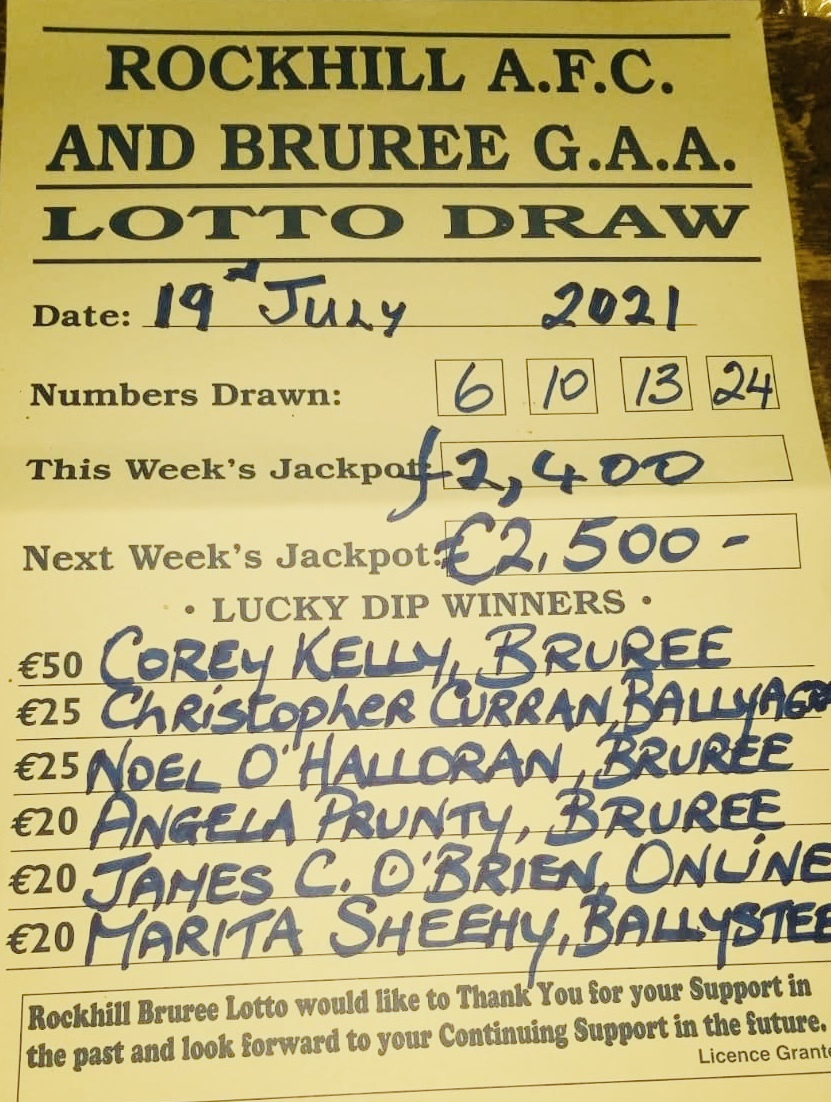 ROCKHILL A.F.C.
AND BRUREE G.A.A.
LOTTO DRAW
Date: 19 July 2021
Numbers Drawn: 6 10 13 24
This Week's Jackpot: £2,400
Next Week's Jackpot: €2,500-
• LUCKY DIP WINNERS •
€50 COREY KELLY, BRUREE
€25 Christopher CURRAN,
€25 NOEL O'HALLORAN, BRUREE
€20 ANGELA PRUNTY, BRUREE
€20 JAMES C. O'BRIEN, ONLINE
€20 MARITA SHEEHY, BALLYSTEE
Rockhill Bruree Lotto would like to Thank You for your Support in
the past and look forward to your Continuing Support in the future.
Licence Grante